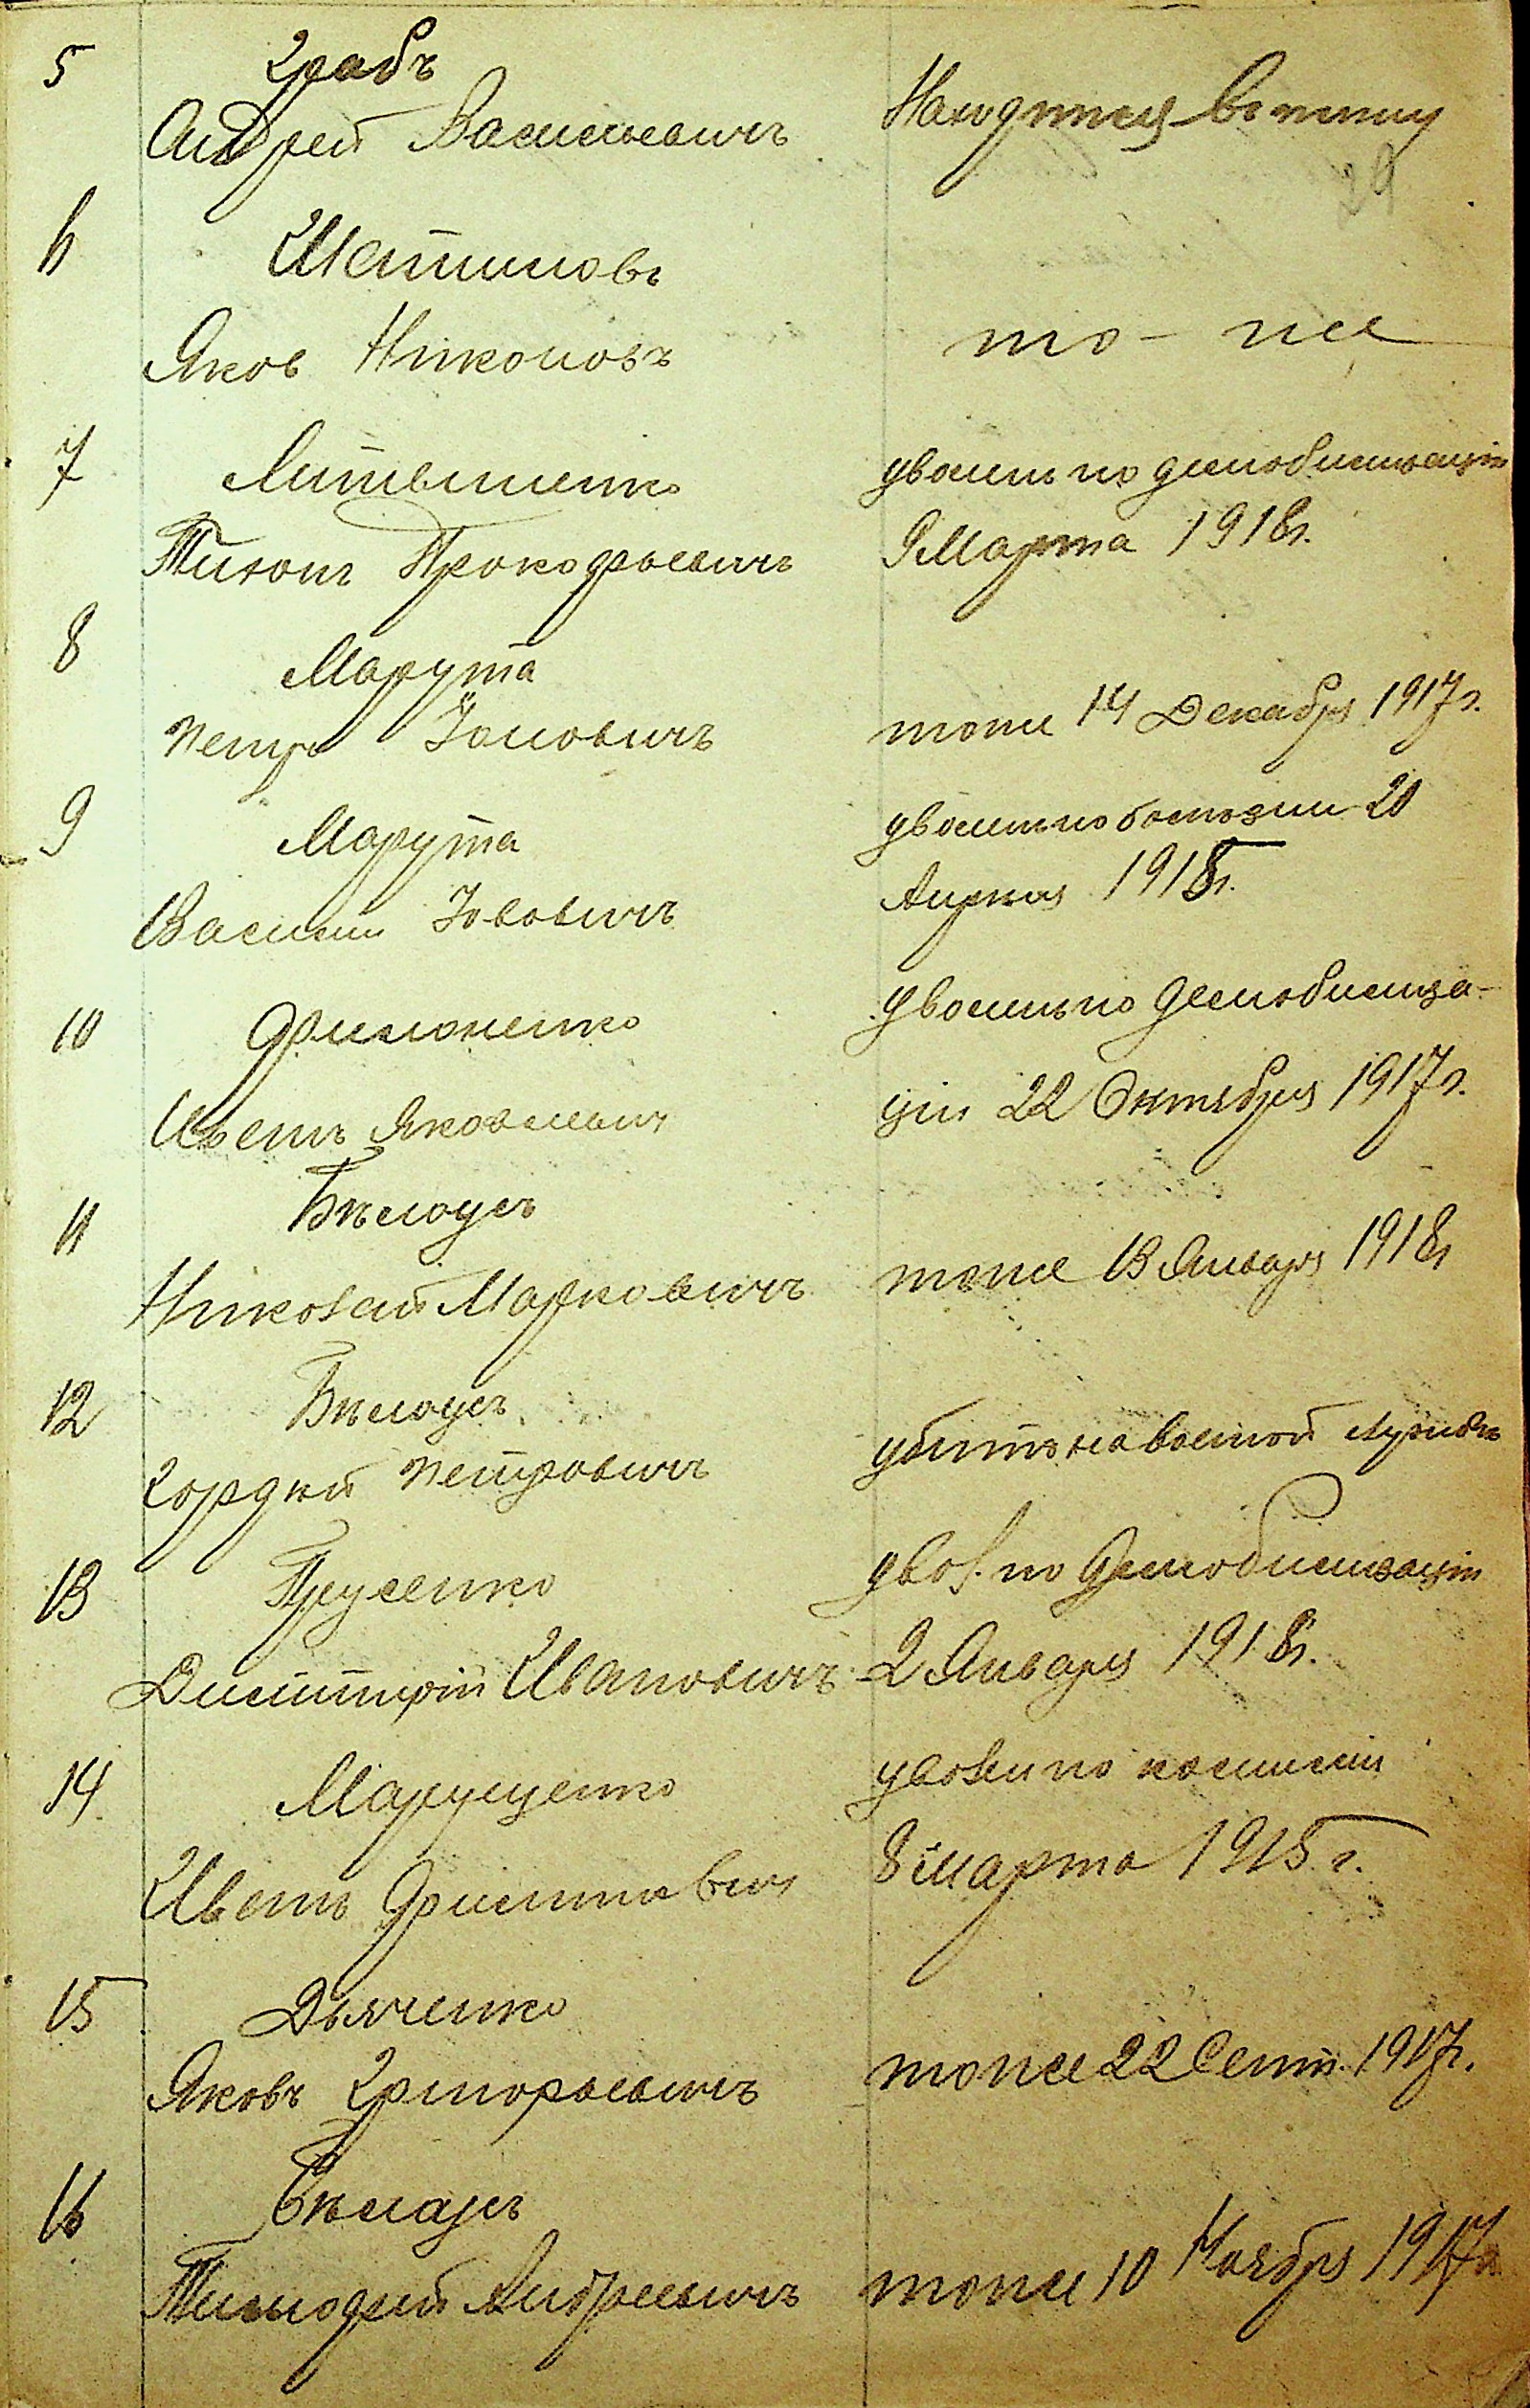 5 Грабъ
Андрей Васильевичъ
Находится въ плену
29
6 Шетиловъ
Яков Никоновъ
то-же
7 Литвиненко
Тихонъ Прокофьевичъ
уволенъ по демобилизаціи
9 Марта 1918г.
8 Марута
Петръ Іоновичъ
тоже 14 Декабря 1917г.
9 Марута
Василій Іововичъ
уволенъ по болезни 20
Апреля 1918г.
10 Филоненко
Иванъ Яковлевич
Уволенъ по демобилиза-
ціи 22 Октября 1917г.
11 Бѣлоусъ
Николай Марковичъ
тоже 13 Января 1918г
12 Бѣлоусъ
Гордѣй Петровичъ
убитъ на военной службѣ
13 Прусенко
Димитрій Ивановичъ
увол. по Демобилизаціи
2 Января 1918г.
14 Марущенко
Иванъ Филиппович
уволен по комиссіи
8 марта 1915 г.
15 Дьяченко
Яковъ Григорьевичъ
тоже 22 Сент. 1917г.
16 Бѣлоусъ
Тимофей Андреевичъ
тоже 10 Ноября 1917г